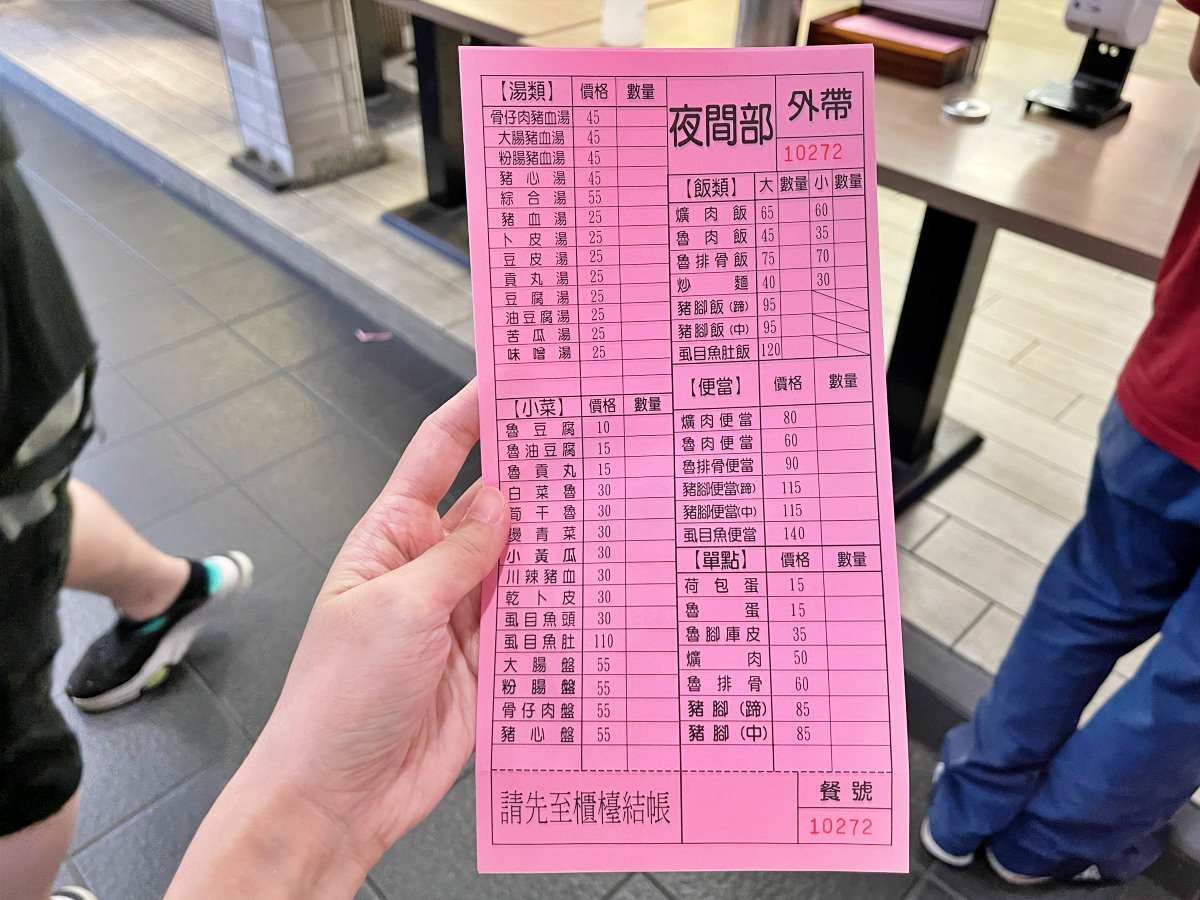 【湯類】 價格 數量
骨仔肉豬血湯 45
大腸豬血湯 45
粉腸豬血湯 45
豬心湯 45
綜合湯 55
豬血湯 25
卜皮湯 25
豆皮湯 25
貢丸湯 25
豆腐湯 25
油豆腐湯 25
苦瓜湯 25
味噌湯 25
【小菜】 價格 數量
魯豆腐 10
魯油豆腐 15
魯貢丸 15
白菜魯 30
筍干魯 30
燙青菜 30
小黃瓜 30
川辣豬血 30
乾卜皮 30
虱目魚頭 30
虱目魚肚 110
大腸盤 55
粉腸盤 55
骨仔肉盤 55
豬心盤 55
夜間部
外帶
10272
【飯類】 大 數量 小 數量
爌肉飯 65 60
魯肉飯 45 35
魯排骨飯 75 70
炒麵 40 30
豬腳飯(蹄) 95
豬腳飯(中) 95
虱目魚肚飯 120
【便當】 價格 數量
爌肉便當 80
魯肉便當 60
魯排骨便當 90
豬腳便當(蹄) 115
豬腳便當(中) 115
虱目魚便當 140
【單點】 價格 數量
荷包蛋 15
魯蛋 15
魯腳庫皮 35
爌肉 50
魯排骨 60
豬腳(蹄) 85
豬腳(中) 85
請先至櫃檯結帳
餐號
10272